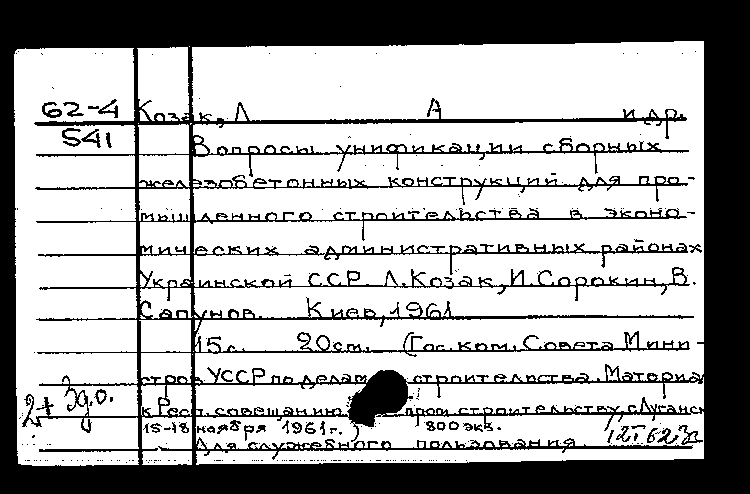 62-4 Козак, Л А и др.
541 Вопросы унификации сборных
железобетонных конструкций для про-
мышленного строительства в эконо-
мических административных районах
Украинской ССР. Л. Козак, И. Сорокин, В.
Сапунов. Киев, 1961
15 с. 20 cm. (Гос. ком. Совета Мини-
стров УССР по делам строительства. Материа
к Респ. совещанию пром строительству, г. Луганск
15-18 ноября 1961 г.) 800 экз.
Для служебного пользования.
2+